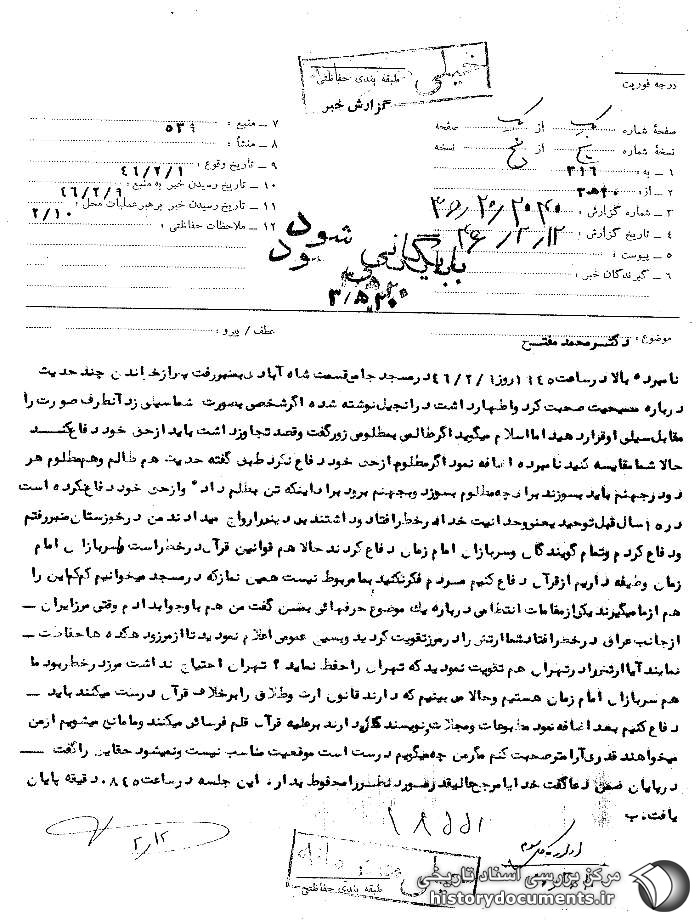 خیلی
طبقه بندی حفاظتی:
گزارش خبر
درجه فوریت
صفحه شماره : یک از یک صفحه
نسخه شماره : از نسخه
۱ ـ به : ۳۱۶
۲ ـ از :
۳ ـ شماره گزارش :
۴ ـ تاریخ گزارش :
۵ ـ پیوست :
۶ ـ گیرندگان خبر :
۷ ـ منبع : ۵۳۹
۸ ـ منشأ :
۹ ـ تاریخ وقوع : ۴۶/۲/۹
۱۰ ـ تاریخ رسیدن خبر به منبع : ۴۶/۲/۹
۱۱ ـ تاریخ رسیدن خبر برهبر عملیات محل : ۲/۱۰
۱۲ ـ ملاحظات حفاظتی :
بایگانی شود
موضوع : دکتر محمد مفتح
عطف / پیرو :
نامبرده بالا در ساعت روز ۴۶/۲/۹ در مسجد جامع قسمت شاه آباد بمنبر رفت پس از خواندن چند حدیث
درباره مسیحیت صحبت کرد و اظهار داشت در انجیل نوشته شده اگر شخصی بصورت شما سیلی زد آنطرف صورت را
مقابل سیلی او قرار دهید اما اسلام میگوید اگر ظالمی بمظلومی زور گفت و قصد تجاوز داشت باید از حق خود دفاع کند
حالا شما مقایسه کنید نامبرده اضافه نمود اگر مظلوم از حق خود دفاع نکرد طبق گفته حدیث هم ظالم وهم مظلوم هر
دو در جهنم باید بسوزند برای چه مظلوم بسوزد و بجهنم برود برای اینکه تن بظلم داده و از حق خود دفاع نکرده است
در سال قبل توحید یعنی وحدانیت خدا بخطر افتاد و داشتند بیدینی را رواج میدادند من در خوزستان منبر رفتم
و دفاع کردم و تمام گویندگان و سربازان امام زمان دفاع کردند حالا هم قوانین قرآن در خطر است و ما سربازان امام
زمان وظیفه داریم از قرآن دفاع کنیم مردم فکر نکنید بما مربوط نیست همین نماز که در مسجد میخوانیم کم کم این را
هم از ما میگیرند یکی از مقامات انتظامی درباره یک موضوع حرفهائی بمن گفت من هم باو جواب دادم وقتی مرز ایران ـ
از جانب عراق در خطر افتاد شما ارتش را در مرز تقویت کردید و بسیج عمومی اعلام نمودید تا از مرز و دهکده ها حفاظت ـ
نمایند آیا ارتش را در تهران هم تقویت نمودید که تهران را حفظ نماید ؟ تهران احتیاج نداشت مرز در خطر بود ما
هم سربازان امام زمان هستیم و حالا می بینیم که دارند قانون ارث و طلاق را برخلاف قرآن درست میکنند باید ـ
دفاع کنیم بعد اضافه نمود مطبوعات و مجلات و نویسندگان دارند برعلیه قرآن قلم فرسائی میکنند و ما مانع میشویم از من
میخواهند قدری آرامتر صحبت کنم مگر من چه میگویم درست است موقعیت مناسب نیست و نمیشود حقایق را گفت ـ
در پایان ضمن دعا گفت خدایا مرجع عالیقدر مورد نظر را محفوظ بدار . این جلسه در ساعت دقیقه پایان
یافت . ب
۲/۱۲
اداره کل سوم
طبقه بندی حفاظتی:
مرکز بررسی اسناد تاریخی
historydocuments.ir